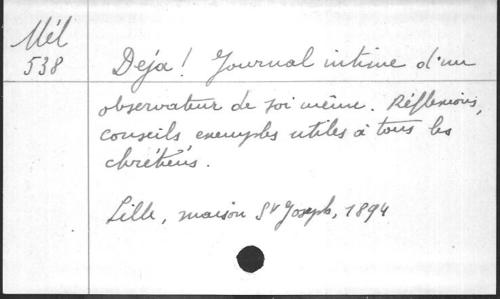 Mél
538
Deja! Journal intime d'un
observateur de soi même. Réflexions,
conseils, exemples utiles à tous les
chrétiens.
Lille, maison St Joseph, 1894